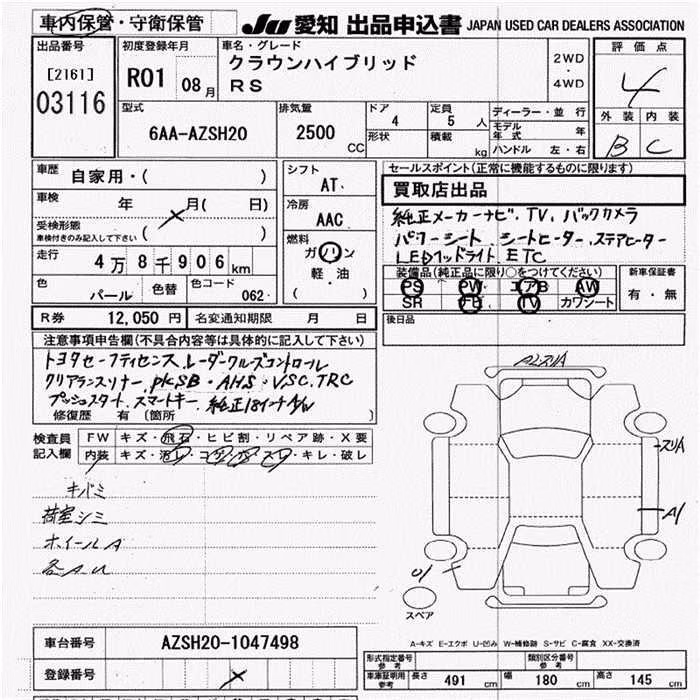 車内保管・守衛保管
JU 愛知 出品申込書 JAPAN USED CAR DEALERS ASSOCIATION
出品番号
[2161]
03116
初度登録年月
R01 08月
車名・グレード
クラウンハイブリッド
RS
2WD
・
4WD
評価点
4
外装 内装
B C
型式
6AA-AZSH20
排気量
2500 CC
ドア
4
形状
定員
5 人
積載
kg
ディーラー・並行
モデル年式 年
ハンドル 左・右
車歴
自家用・( )
車検
年 月( 日)
受検形態
車検付きのみ記入して下さい ( )
走行
4万8千906km
色
パール
色替
色コード
062
シフト
AT
冷房
AAC
燃料
ガソリン
軽・油
( )
セールスポイント(正常に機能するものに限ります)
買取店出品
純正メーカーナビ、TV、バックカメラ
パワーシート、シートヒーター、ステアヒーター
LEDヘッドライト、ETC
装備品(純正品に限り○をつけてください)
PS PW エアB AW
SR TV カワシート
新車保証書
有・無
R券 12,050円 名変通知期限 月 日
後日品
注意事項申告欄(不具合内容等は具体的に記入して下さい)
トヨタセーフティセンス、レーダークルーズコントロール
クリアランスソナー、PKSB・AHS・VSC、TRC
プッシュスタート、スマートキー、純正18インチA/W
修復歴 有 〔箇所 〕
検査員記入欄
FW キズ・飛石・ヒビ割・リペア跡・X要
内装 キズ・汚レ・コゲ・穴・スレ・キレ・破レ
キバミ
荷室シミ
ホイールA
各A.U
スリA
A1
スペア
A-キズ E-エクボ U-凹み W-補修跡 S-サビ C-腐食 XX-交換済
車台番号 AZSH20-1047498
登録番号
形式指定番号 参考
類別区分番号 参考
車庫証明用参考 長さ 491 cm 幅 180 cm 高さ 145 cm